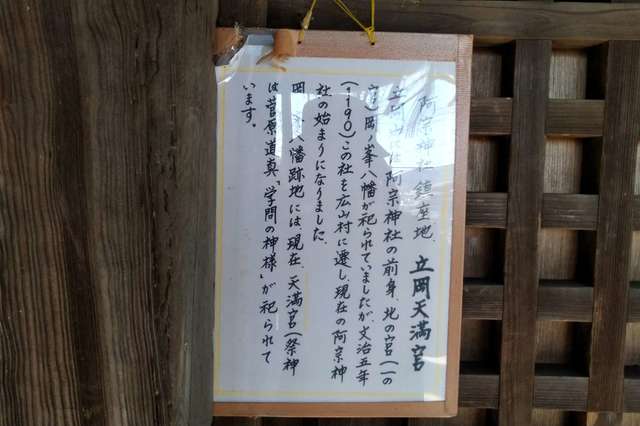 阿宗神社鎮座地、立岡天満宮
立岡山には阿宗神社の前身、北の宮(一の
宮)岡ノ峯八幡が祀られていましたが、文治五年
(1190)この社を広山村に遷し、現在の阿宗神
社の始まりになりました。
岡 八幡跡地には、現在、天満宮(祭神
は菅原道真、学問の神様)が祀られて
います。